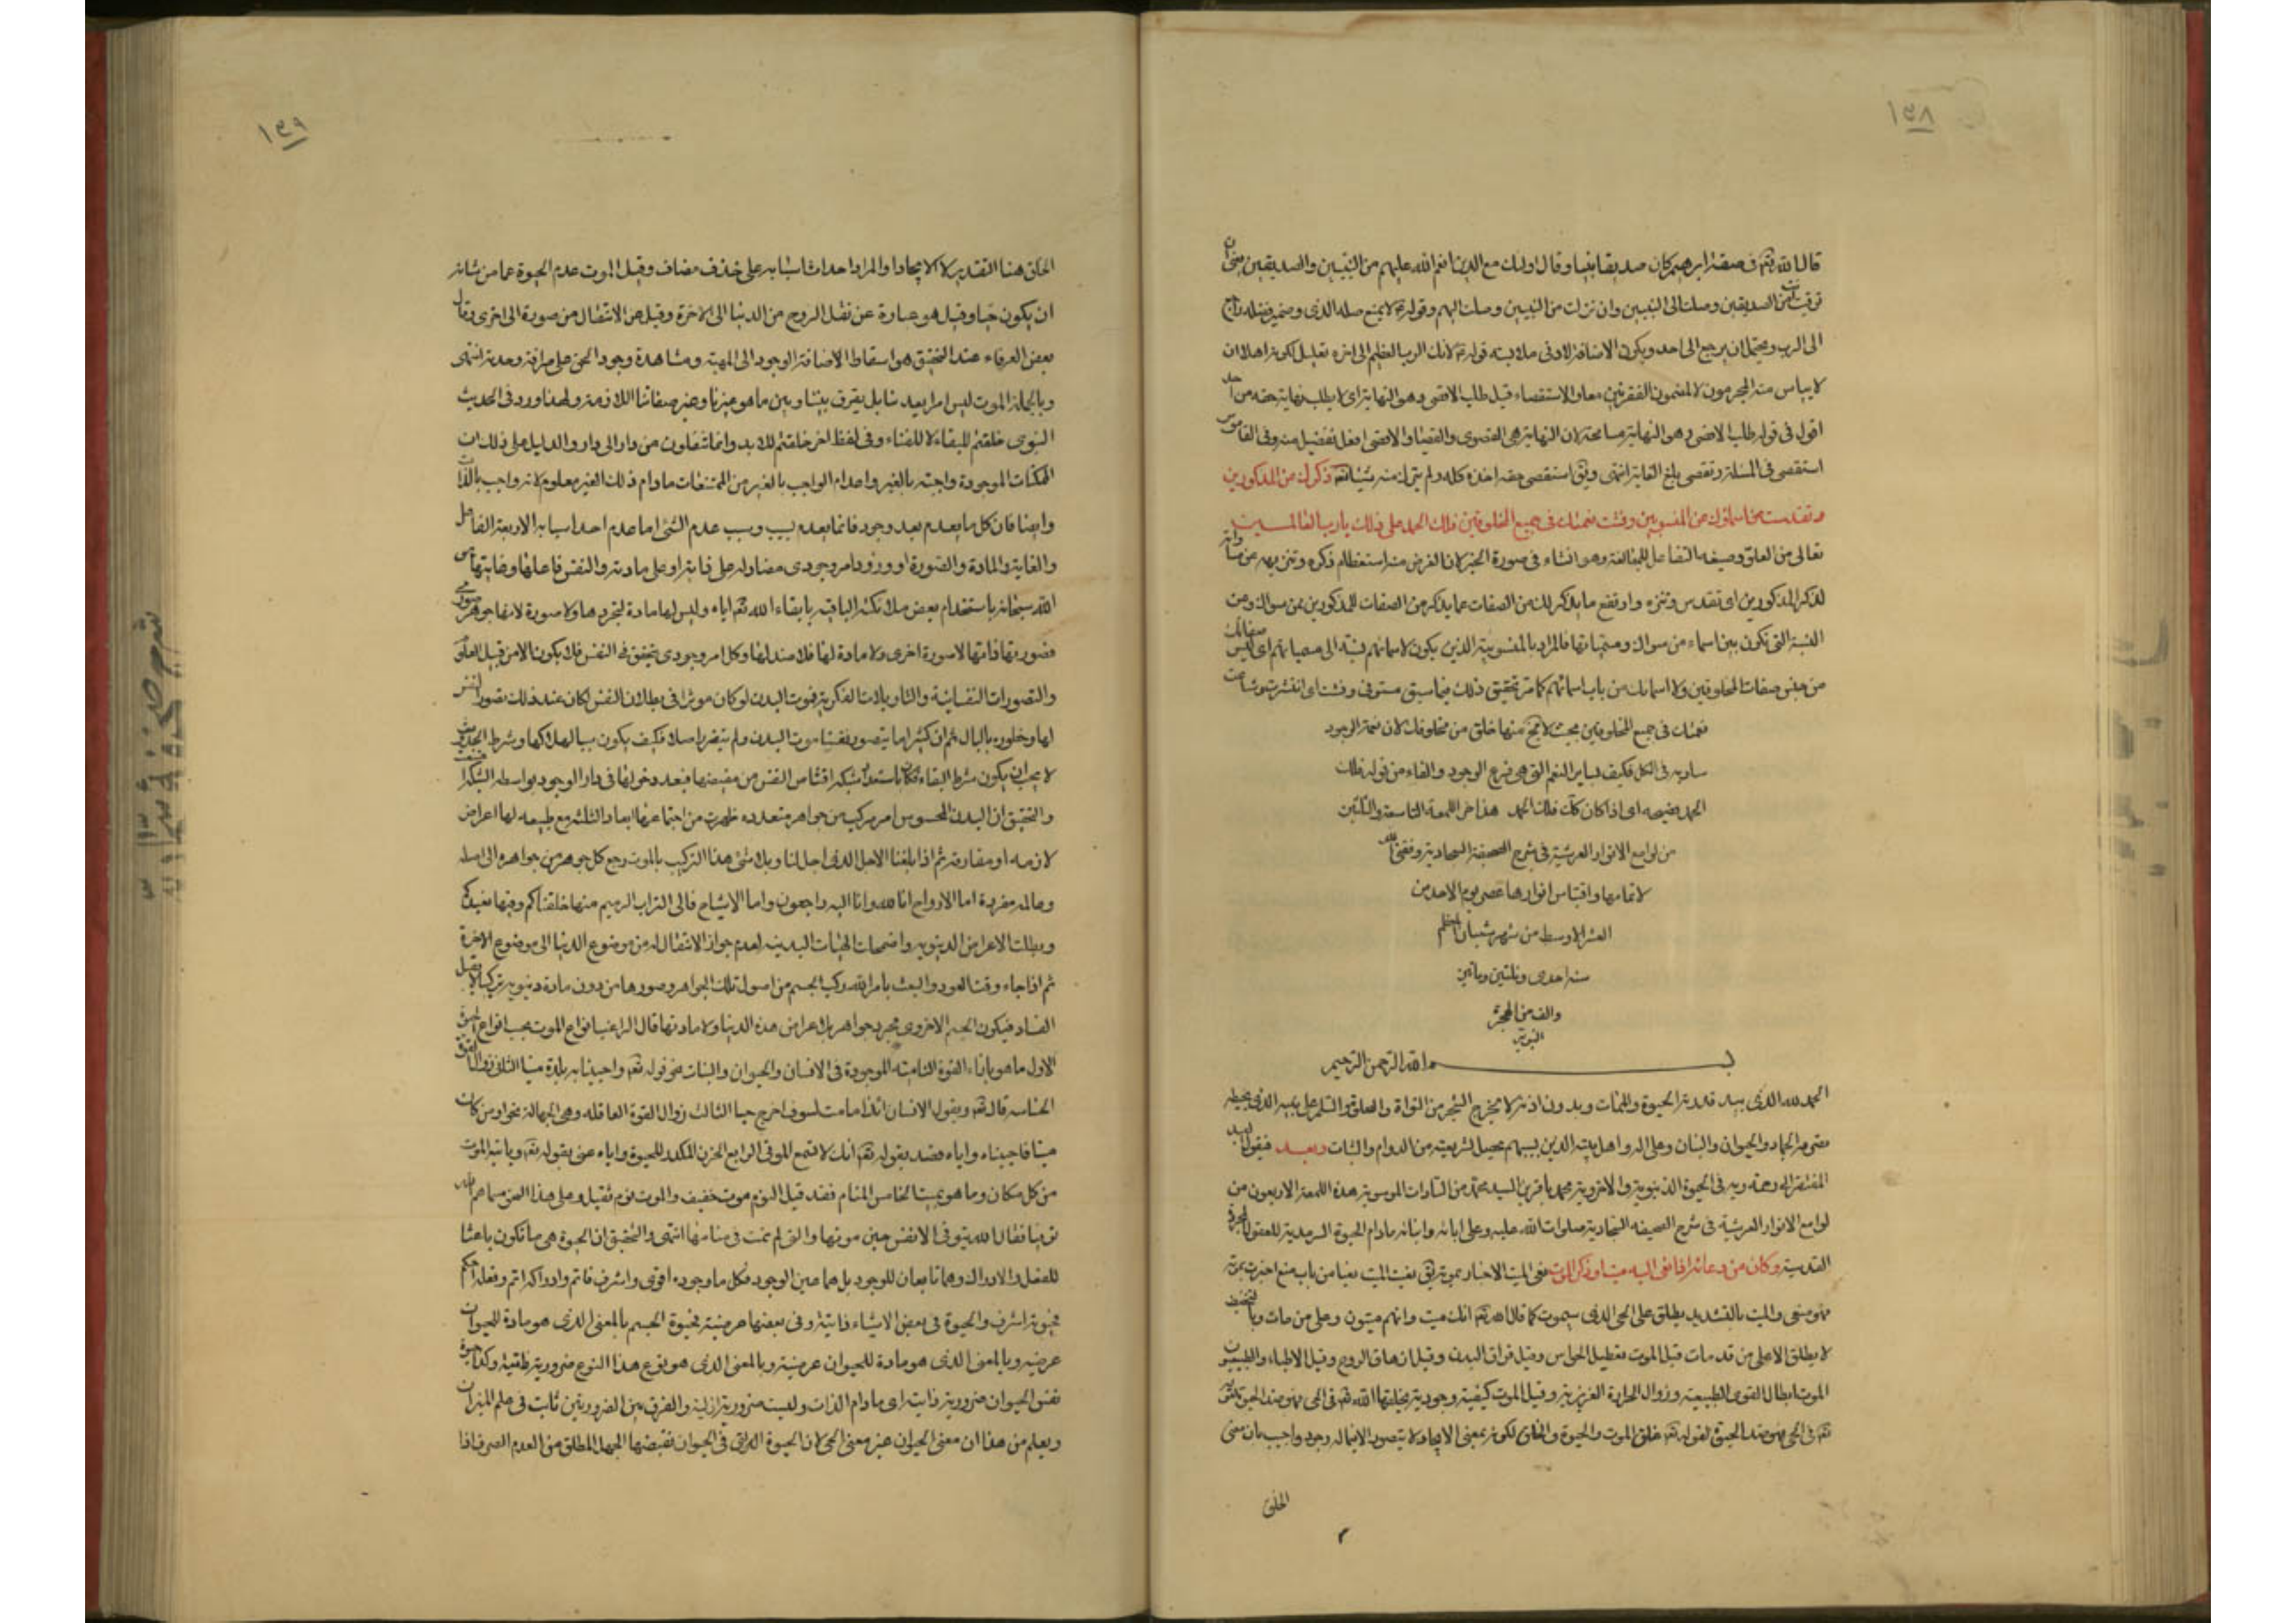 ١٣٨
قال الله تعالى في صفة ابرهيم كان صديقا نبيا وقال اولئك مع الذين انعم الله عليهم من النبيين والصديقين يعني ان
ترقيت من الصديقين وصلت الى النبيين وان نزلت من النبيين وصلت اليهم وقوله لا يمنع صلة الذي وضمير فضله راجع
الى الرب ويحتمل ان يرجع الى احد ويكون الاضافة لادنى ملابسة قوله لانك الرب العظيم الى اخره تعليل لكونه اهلا ان
لا ييأس منه المجرمون لا لمضمون الفقرتين معا والاستقصاء قيل طلب الاقصى وهو النهاية اى لا يطلب نهاية حقه من احد
اقول في قوله طلب الاقصى وهو النهاية مسامحة لان النهاية هي القصوى والاقصى افعل تفضيل منه وفي القاموس
استقصى في المسئلة وتقصى بلغ الغاية انتهى ويق استقصى حقه اخذه كله ولم يترك منه شيئا تعالى ذكرك عن المذكورين
وتقدست اسماؤك عن المنسوبين وفشت نعمتك في جميع المخلوقين فلك الحمد على ذلك يا رب العالمين
تعالى من العلو وصيغة التفاعل للمبالغة وهو انشاء في صورة الخبر لان الغرض منه استعظام ذكره وتنزيهه عن
لذكر المذكورين اى تقدس وتنزه وارتفع ما يذكر لك من الصفات عما يذكر من الصفات للمذكورين ممن سواك وعن
النسبة التي تكون بين اسماء من سواك ومسمياتها فالمراد بالمنسوبين الذين يكون لاسمائهم نسبة الى مسمياتهم اى ليس صفاتك
من جنس صفات المخلوقين ولا اسمائك من باب اسمائهم كما مر تحقيق ذلك فيما سبق مستوفى وفشت اى انتشرت وشاعت
نعمتك في جميع المخلوقين بحيث لا يخ منها خلق من مخلوقك لان نعمة الوجود
سارية في الكل فكيف بساير النعم التي هي فرع الوجود والفاء من قوله فلك
الحمد فصيحة اى اذا كان كك فلك الحمد هذا اخر اللمعة التاسعة والثلثين
من لوامع الانوار العرشية في شرح الصحيفة السجادية وفقني الله
لاتمامها واقتباس انوارها عصر يوم الاحد من
العشر الاوسط من شهر شعبان المعظم
سنة احدى وثلثين ومأتين
والف من الهجرة
النبوية
بسم الله الرحمن الرحيم
الحمد لله الذي بيد قدرته الحيوة والممات وبدون اذنه لا يخرج الشجر من النواة والصلوة والسلم على نبيه الذي
الجماد والحيوان والنبات وعلى اله واهل بيته الذين بسببهم تحصيل شريعته من الدوام والثبات وبعد فيقول العبد
المفتقر الى رحمة ربه في الحيوة الدنيوية والاخروية محمد باقر بن السيد محمد من السادات الموسوية هذه اللمعة الاربعون من
لوامع الانوار العرشية في شرح الصحيفة السجادية صلوات الله عليه وعلى ابائه وابنائه ما دام الحيوة السرمدية للعقول المجردة
القدسية وكان من دعائه اذا نعى اليه ميت او ذكر الموت نعى الميت الاخبار بموته يق نعيت الميت نعيا من باب منع اخبرت بموته
فهو منعى والميت بالتشديد يطلق على الحي الذي سيموت كما قال الله تعالى انك ميت وانهم ميتون وعلى من مات وبالتخفيف
لا يطلق الا على من قد مات قيل الموت تعطيل الحواس وقيل فراق البدن وقيل ازهاق الروح وقيل الاطباء والطبيعيون
الموت ابطال القوى الطبيعية وزوال الحرارة الغريزية وقيل الموت كيفية وجودية يخلقها الله تعالى في الحي فهو ضد الحيوة
في الحي فهو ضد الحيوة لقوله تعالى خلق الموت والحيوة والخلق لكونه بمعنى الايجاد لا يتصور الا فيما له وجود واجيب بان معنى
الخلق
١٣٩
الخلق هنا التقدير لا الايجاد او المراد احداث اسبابه على حذف مضاف وقيل الموت عدم الحيوة عما من شانه
ان يكون حيا وقيل هو عبارة عن نقل الروح من الدنيا الى الاخرة وقيل عن الانتقال من صورة الى اخرى وقال
بعض العرفاء عند التحقيق هو اسقاط الاضافة الوجود الى المهية ومشاهدة وجود الحق على صرافة وحدته انتهى
وبالجملة الموت ليس امرا يعدمنا بل يفرق بيننا وبين ما هو غيرنا وغير صفاتنا اللازمة ولهذا ورد في الحديث
النبوى خلقتم للبقاء لا للفناء وفي لفظ اخر خلقتم للابد وانما تنقلون من دار الى دار والدليل على ذلك ان
الممكنات الموجودة واجبة بالغير واعدام الواجب بالغير من الممتنعات ما دام ذلك الغير معلوم لانه واجب بالذات
وايضا فان كل ما يعدم بعد وجود فانما يعدم بسبب وسبب عدم الشئ اما عدم احد اسبابه الاربعة الفاعل
والغاية والمادة والصورة او ورود امر وجودى مضاد له على ذاته او على مادته والنفس فاعلها وغايتها هي
الله سبحانه باستخدام بعض ملائكته الباقية بابقاء الله تعالى اياه وليس لها مادة لتجردها ولا صورة لانها جوهر صورى
فصورتها ذاتها لا صورة اخرى ولا مادة لها فلا ضد لها وكل امر وجودى يتحقق في النفس فلا يكون الا من قبيل العلوم
والتصورات النفسانية والتاويلات الفكرية فموت البدن لو كان موثرا في بطلان النفس لكان عند ذلك تصور النفس
لها وخلوده بالبال ثم ان كثيرا ما يتصور نفسنا موت البدن ولم يتضر اصلا فكيف يكون سببا لهلاكها وشرط
لا يجب ان يكون شرط البقاء فكان باستعداد شبكة اقتناص النفس من مفيضها فبعد دخولها في دار الوجود بواسطة الشبكة
والتحقيق ان البدن المحسوس امر مركب من جواهر متعددة ظهرت من اجتماعها ابعاد الثلثة مع طبيعة لها اعراض
لازمة او مفارقة ثم اذا بلغنا الاجل الذي اجل لنا وتلاشى هذا التركيب بالموت رجع كل جوهر من جواهره الى اصله
وعالمه مفردة اما الارواح انا لله وانا اليه راجعون واما الاشباح فالى التراب الرميم منها خلقناكم وفيها نعيدكم
وبطلت الاعراض الدنيوية واضمحلت الهيئات البدنية لعدم جواز الانتقال له من موضوع الدنيا الى موضوع الاخرة
ثم اذا جاء وقت العود والبعث بامر الله تركب الجسم من اصول تلك الجواهر وصورها من دون مادة دنيوية تركيبا لا يقبل
الفساد فيكون الجسم الاخروى مجرد جواهر بلا اعراض هذه الدنيا ولا مادتها قال الراغب انواع الموت بحسب انواع الحيوة
الاول ما هو بازاء القوة النامية الموجودة في الانسان والحيوان والنبات نحو قوله تعالى واحيينا به بلدة ميتا الثاني زوال القوة
الحساسة قال تعالى ويقول الانسان ائذا ما مت لسوف اخرج حيا الثالث زوال القوة العاقلة وهي الجهالة نحو او من كان
ميتا فاحييناه واياه قصد بقوله تعالى انك لا تسمع الموتى الرابع الحزن المكدر للحيوة واياه عنى بقوله تعالى ويأتيه الموت
من كل مكان وما هو بميت الخامس المنام فقد قيل النوم موت خفيف والموت نوم ثقيل وعلى هذا النحو سماهما الله
توفيا فقال الله يتوفى الانفس حين موتها والتي لم تمت في منامها انتهى والتحقيق ان الحيوة هي ما تكون باعثا
للفعل والادراك وهما تابعان للوجود بل هما عين الوجود فكل ما وجوده اقوى واشرف فاتم وادراكه اتم وفعله احكم
فحيوته اشرف والحيوة في بعض الاشياء ذاتية وفي بعضها عرضية فحيوة الجسم بالمعنى الذي هو مادة للحيوان
عرضية وبالمعنى الذي هو مادة للحيوان عرضية وبالمعنى الذي هو نوع هذا النوع ضرورية ذاتية وكذا حيوة
نفس الحيوان ضرورية ذاتية اى ما دام الذات وليست ضرورية ازلية والفرق بين الضرورتين ثابت في علم الميزان
ويعلم من هذا ان معنى الحيوان غير معنى الحي لان الحيوة التي في الحيوان نقيضها الجهل المطلق من العدم الصرف اذا